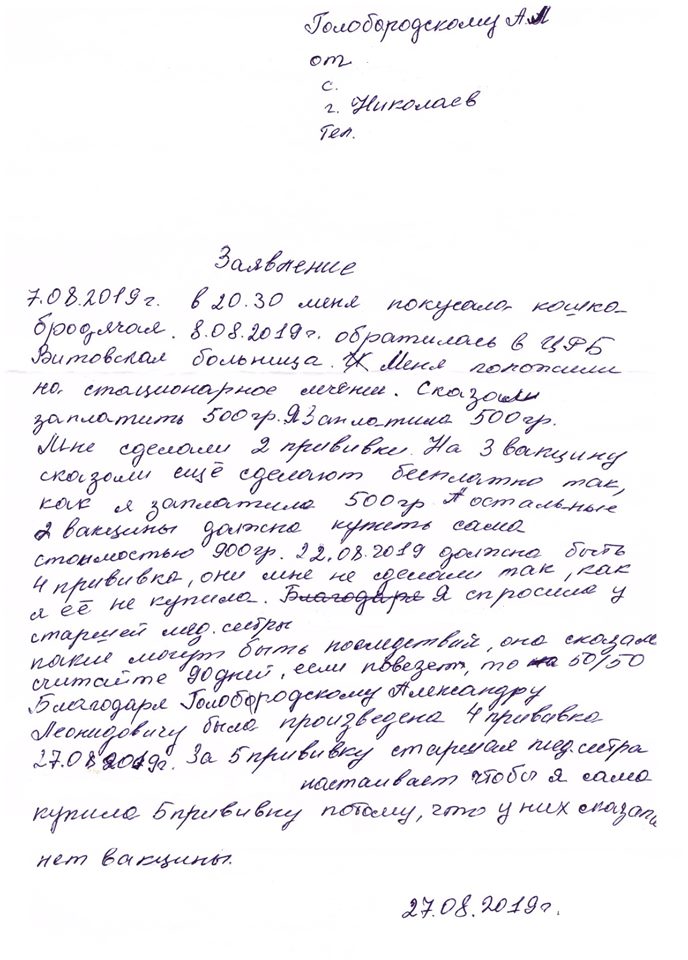 Голобородскому А.Л
от
с.
г. Николаев
тел.
Заявление
7.08.2019г. в 20.30 меня покусала кошка
бродячая. 8.08.2019г. обратилась в ЦРБ
Витовская больница. Меня положили
на стационарное лечени. Сказали
заплатить 500гр. Я Заплатила 500гр.
Мне сделали 2 прививки. На 3 вакцину
сказали ещё сделают бесплатно так,
как я заплатила 500гр. А остальные
2 вакцины должна купить сама
стоимостью 900гр. 22.08.2019 должна быть
4 прививка, они мне не сделали так, как
я её не купила. Благодаря Я спросила у
старшей мед. сестры
какие могут быть последствий, она сказала
считайте 90 дней, если повезет, то на 50/50
Благодаря Голобородскому Александру
Леонидовичу была произведена 4 прививка
27.08.2019г. За 5 прививку старшая медсестра
настаивает чтобы я сама
купила 5 прививку потому, что у них сказала
нет вакцины.
27.08.2019г.